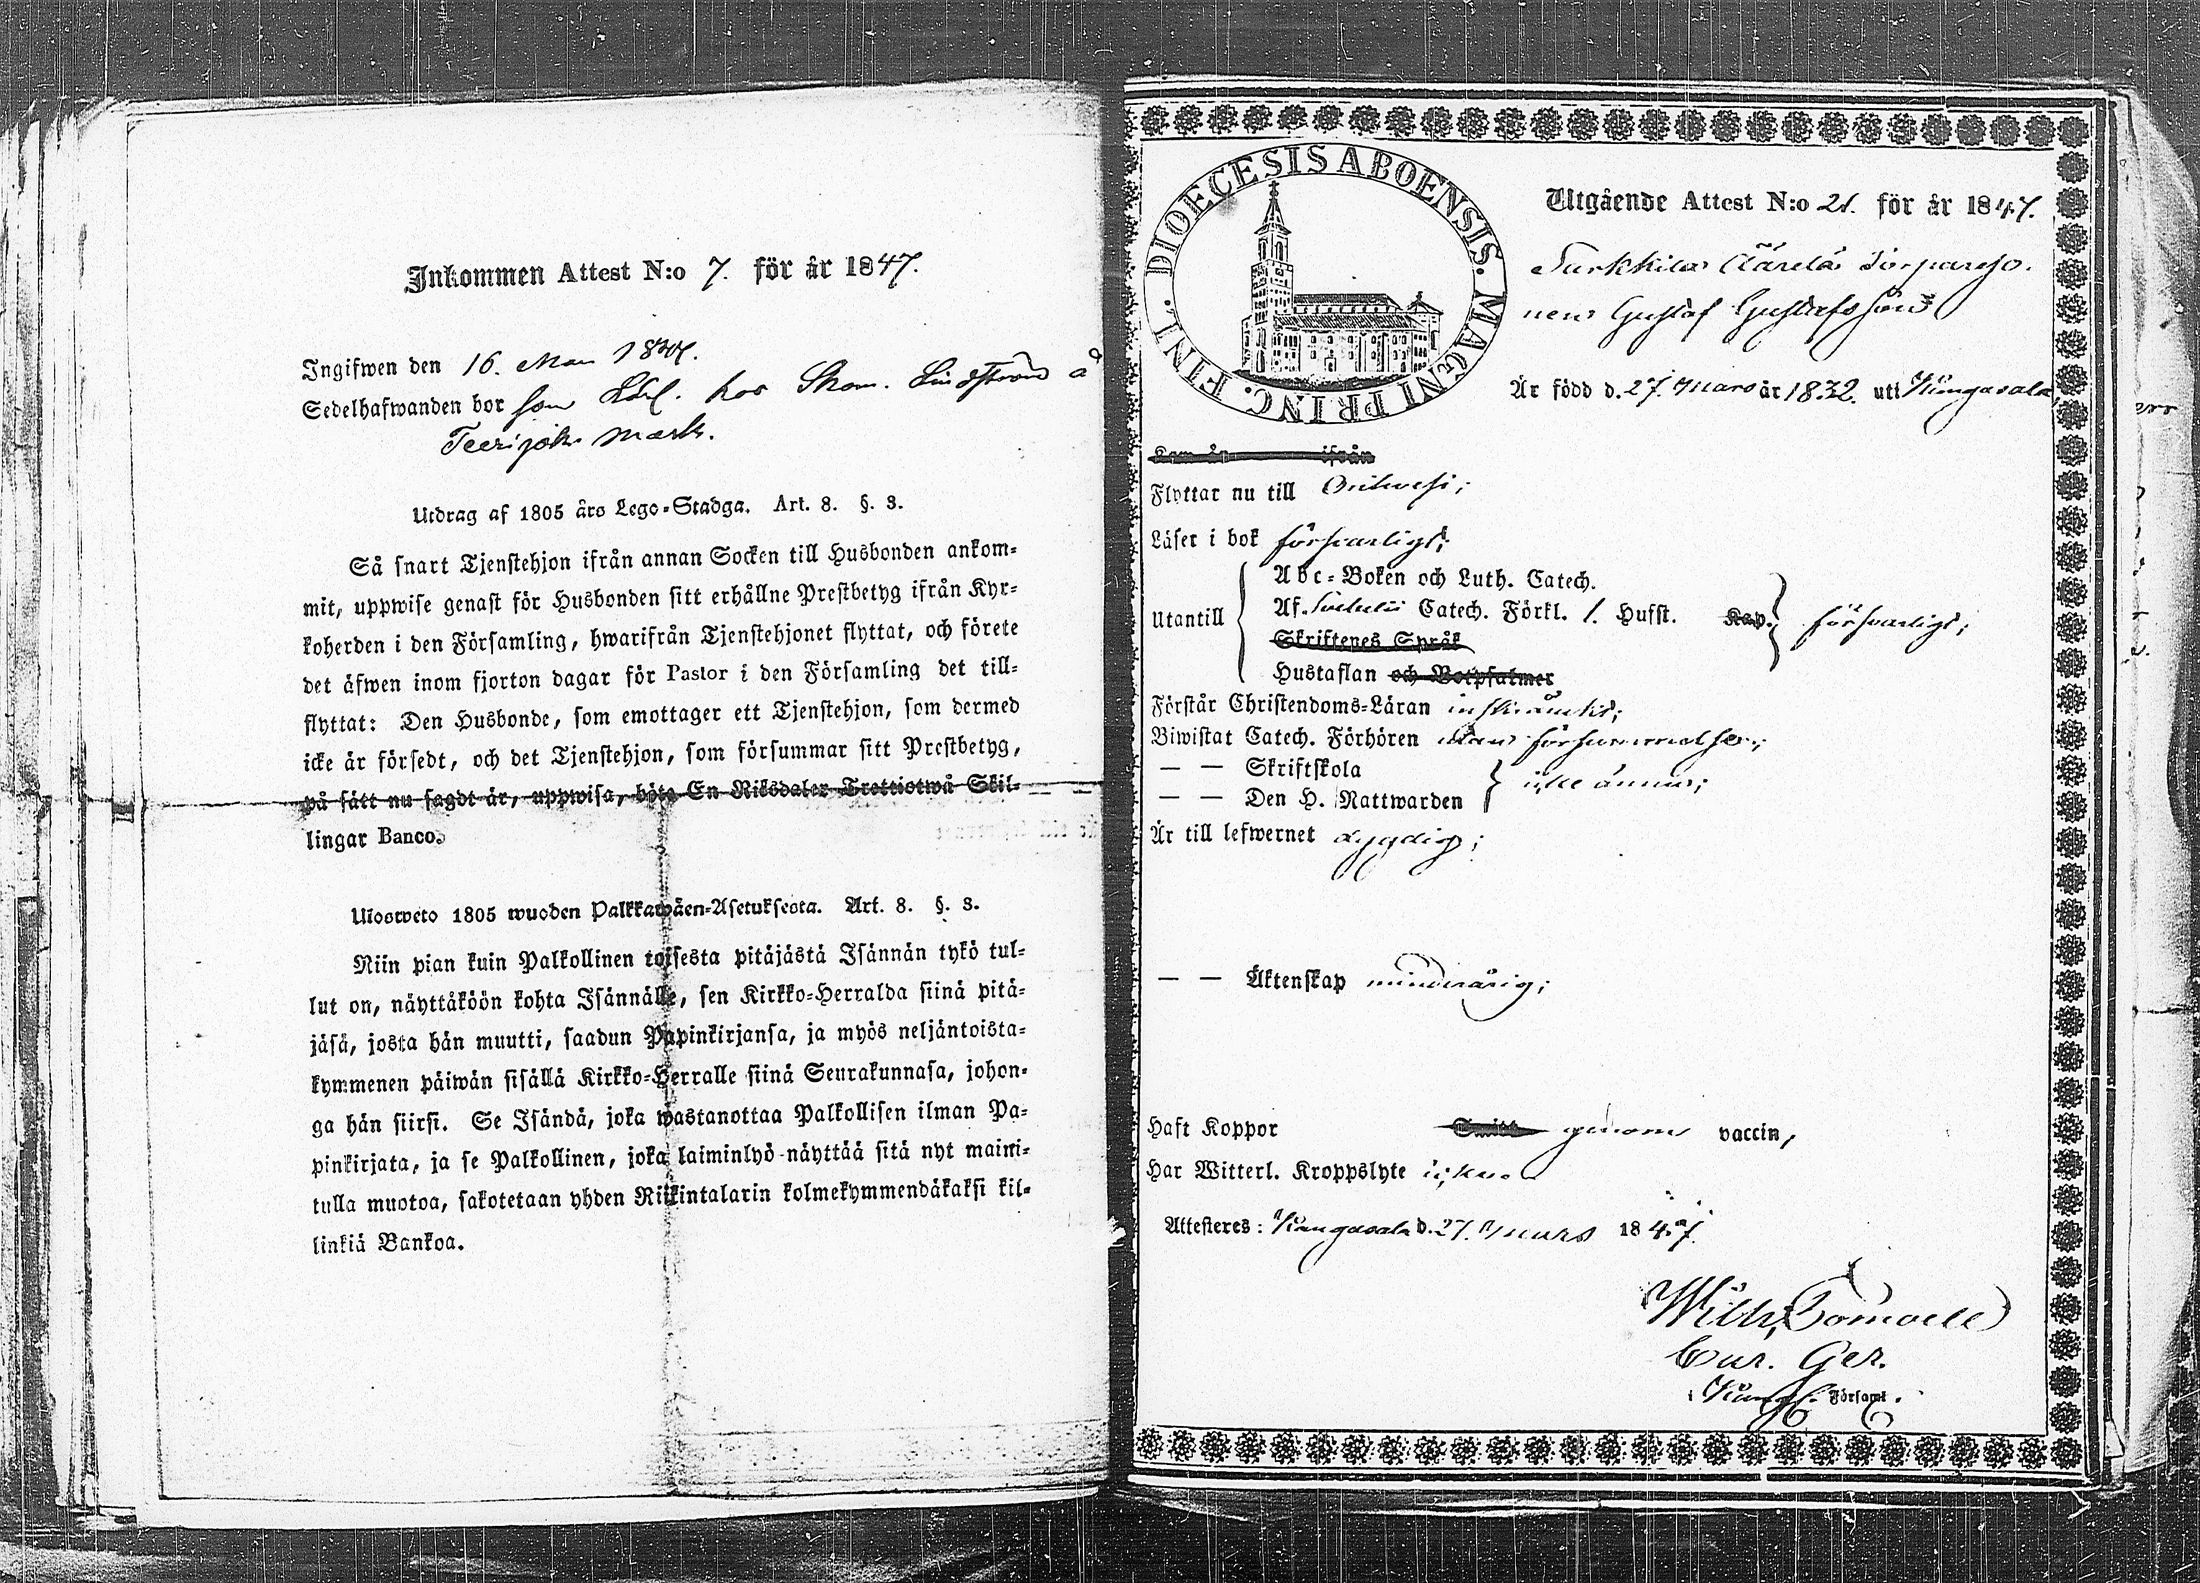 Inkommen Attest N:o 7. för år 1847.
Ingifwen den 16. Maii 1847.
Sedelhafwanden bor som hos Skom. Lindström å
Teerijoki mark.
Utdrag af 1805 års Lego-Stadga. Art. 8. §. 3.
Så snart Tjenstehjon ifrån annan Socken till Husbonden ankom-
mit, uppwise genast för Husbonden sitt erhållne Prestbetyg ifrån Kyr-
koherden i den Församling, hwarifrån Tjenstehjonet flyttat, och förete
det äfwen inom fjorton dagar för Pastor i den Församling det till-
flyttat: Den Husbonde, som emottager ett Tjenstehjon, som dermed
icke är försedt, och det Tjenstehjon, som försummar sitt Prestbetyg,
på sätt nu sagdt är, uppwisa, böte En Riksdaler Trettiotwå Skil-
lingar Banco.
Ulosweto 1805 wuoden Palkkawäen-Asetuksesta. Art. 8. §. 3.
Niin pian kuin Palkollinen toisesta pitäjästä Isännän tykö tul-
lut on, näyttäköön kohta Isännälle, sen Kirkko-Herralda siinä pitä-
jäsä, josta hän muutti, saadun Papinkirjansa, ja myös neljäntoista-
kymmenen päiwän sisällä Kirkko-Herralle siinä Seurakunnasa, johon-
ga hän siirsi. Se Isändä, joka wastanottaa Palkollisen ilman Pa-
pinkirjata, ja se Palkollinen, joka laiminlyö näyttää sitä nyt maini-
tulla muotoa, sakotetaan yhden Riikintalarin kolmekymmendäkaksi kil-
linkiä Bankoa.
DIOECESIS ABOENSIS. MAGNI PRINC. FINL.
Utgående Attest N:o 21. för år 1847.
Turkkila Äärelä Torpareso-
nen Gustaf Gustafsson
Är född d. 27. Mars år 1832. uti Kangasala,
Kom år ifrån
Flyttar nu till Orihvesi;
Läser i bok försvarligt;
Utantill
Abc-Boken och Luth. Catech.
Af. Svebelii Catech. Förkl. 1. Hufst. Kap. försvarligt;
Skriftenes Språk
Hustaflan och Botpsalmer
Förstår Christendoms-Läran inskränkt;
Biwistat Catech. Förhören utan försummelser;
— — Skriftskola
— — Den H. Nattwarden icke ännu;
Är till lefwernet dygdig;
— — Äktenskap minderårig;
Haft Koppor Smitt genom vaccin,
Har Witterl. Kroppslyte icke.
Attesteres: Kangasala d. 27. Mars 1847.
Wilh.
Cur. Ger.
i Kangs. Församl.